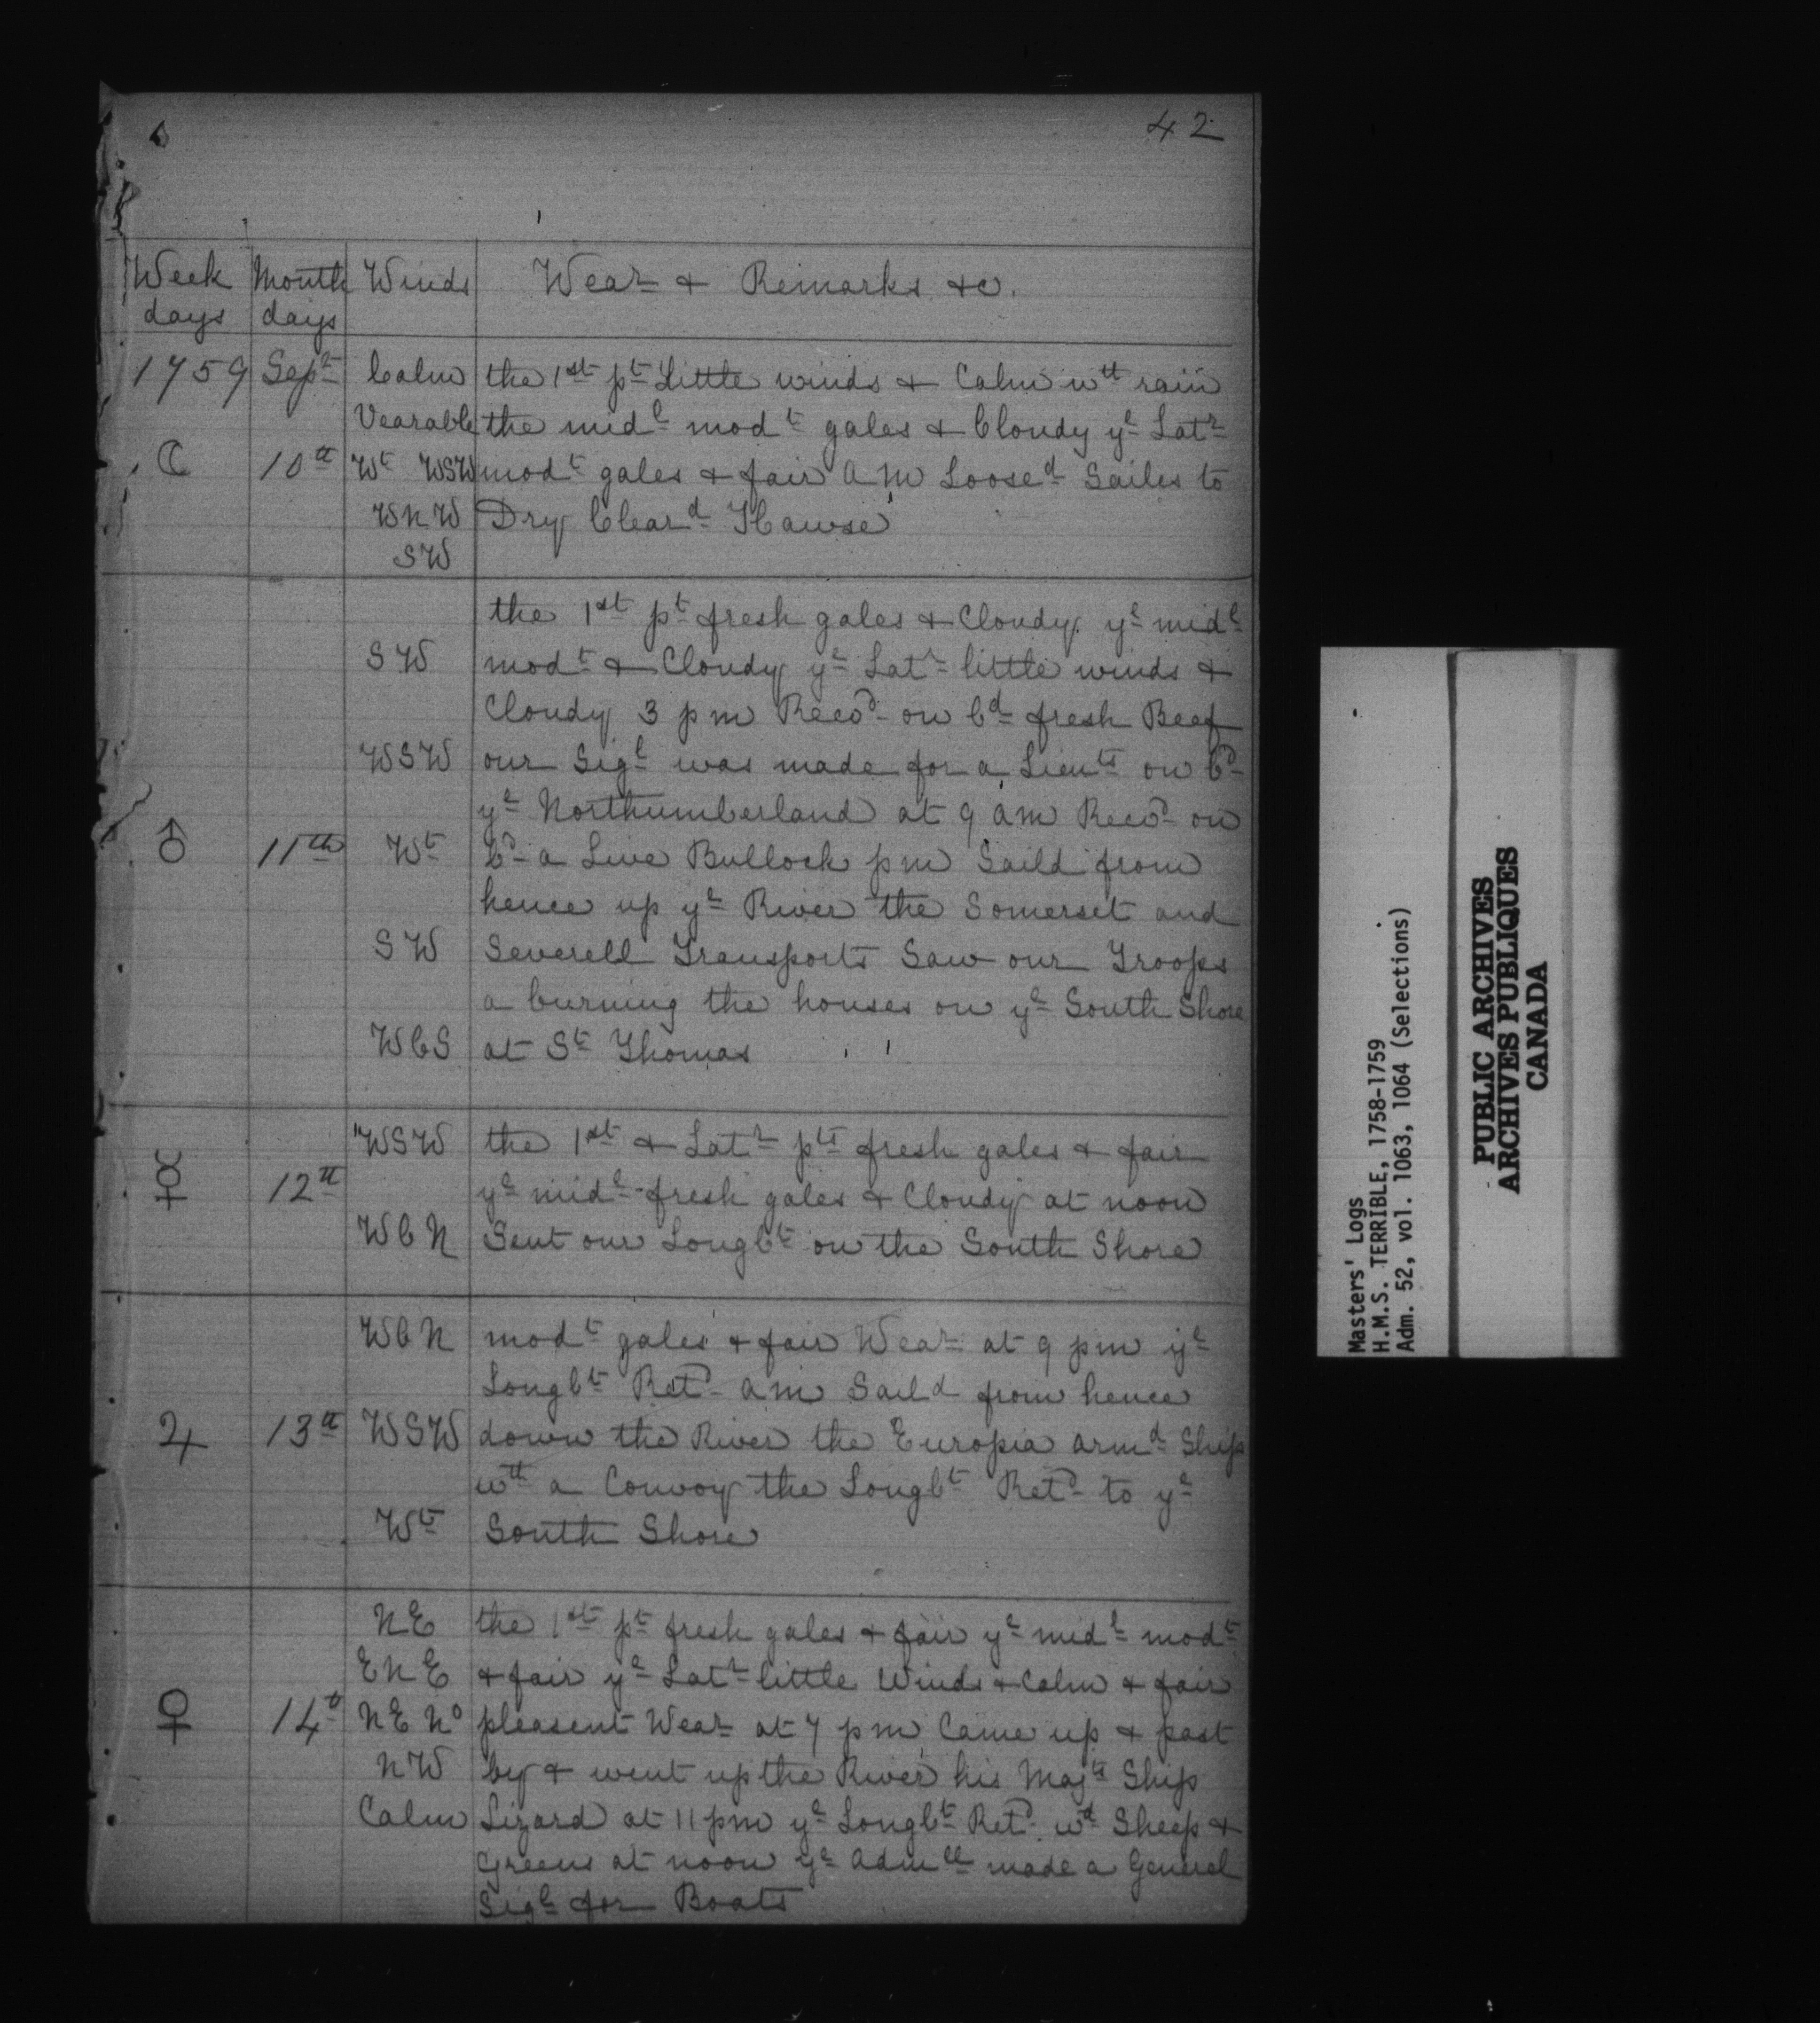 42
Week days | Month days | Winds | Wear & Remarks &c.
1759 Sepr Calm the 1st pt Little winds & Calm wth rain
Vearable the midl modt gales & Cloudy ye Latr
☾ 10th Wt WSW modt gales & fair AM Loosed Sailes to
WNW Dry Cleard Hawse
SW
the 1st pt fresh gales & Cloudy ye midl
SW modt & Cloudy ye Latr little winds &
Cloudy 3 pm Recd on bd fresh Beef
WSW our Sigl was made for a Lieuts on bd
ye Northumberland at 9 am Recd on
♂ 11th Wt bd a Live Bullock pm Saild from
hence up ye River the Somerset and
SW Severell Transports Saw our Troops
a burning the houses on ye South Shore
WbS at St Thomas
WSW the 1st & Latr pts fresh gales & fair
☿ 12th ye midl fresh gales & Cloudy at noon
WbN Sent our Longbt on the South Shore
WbN modt gales & fair Wear at 9 pm ye
Longbt Retd am Saild from hence
♃ 13th WSW down the River the Europia armd Ship
wth a Convoy the Longbt Retd to ye
Wt South Shore
NE the 1st pt fresh gales & fair ye midl modt
ENE & fair ye Latr little Winds & Calm & fair
♀ 14th NE No pleasent Wear at 7 pm Came up & past
NW by & went up the River his Majts Ship
Calm Lizard at 11 pm ye Longbt Retd wth Sheep &
Greens at noon ye Admll made a General
Sigl for Boats
Masters' Logs
H.M.S. TERRIBLE, 1758-1759
Adm. 52, vol. 1063, 1064 (Selections)
PUBLIC ARCHIVES
ARCHIVES PUBLIQUES
CANADA